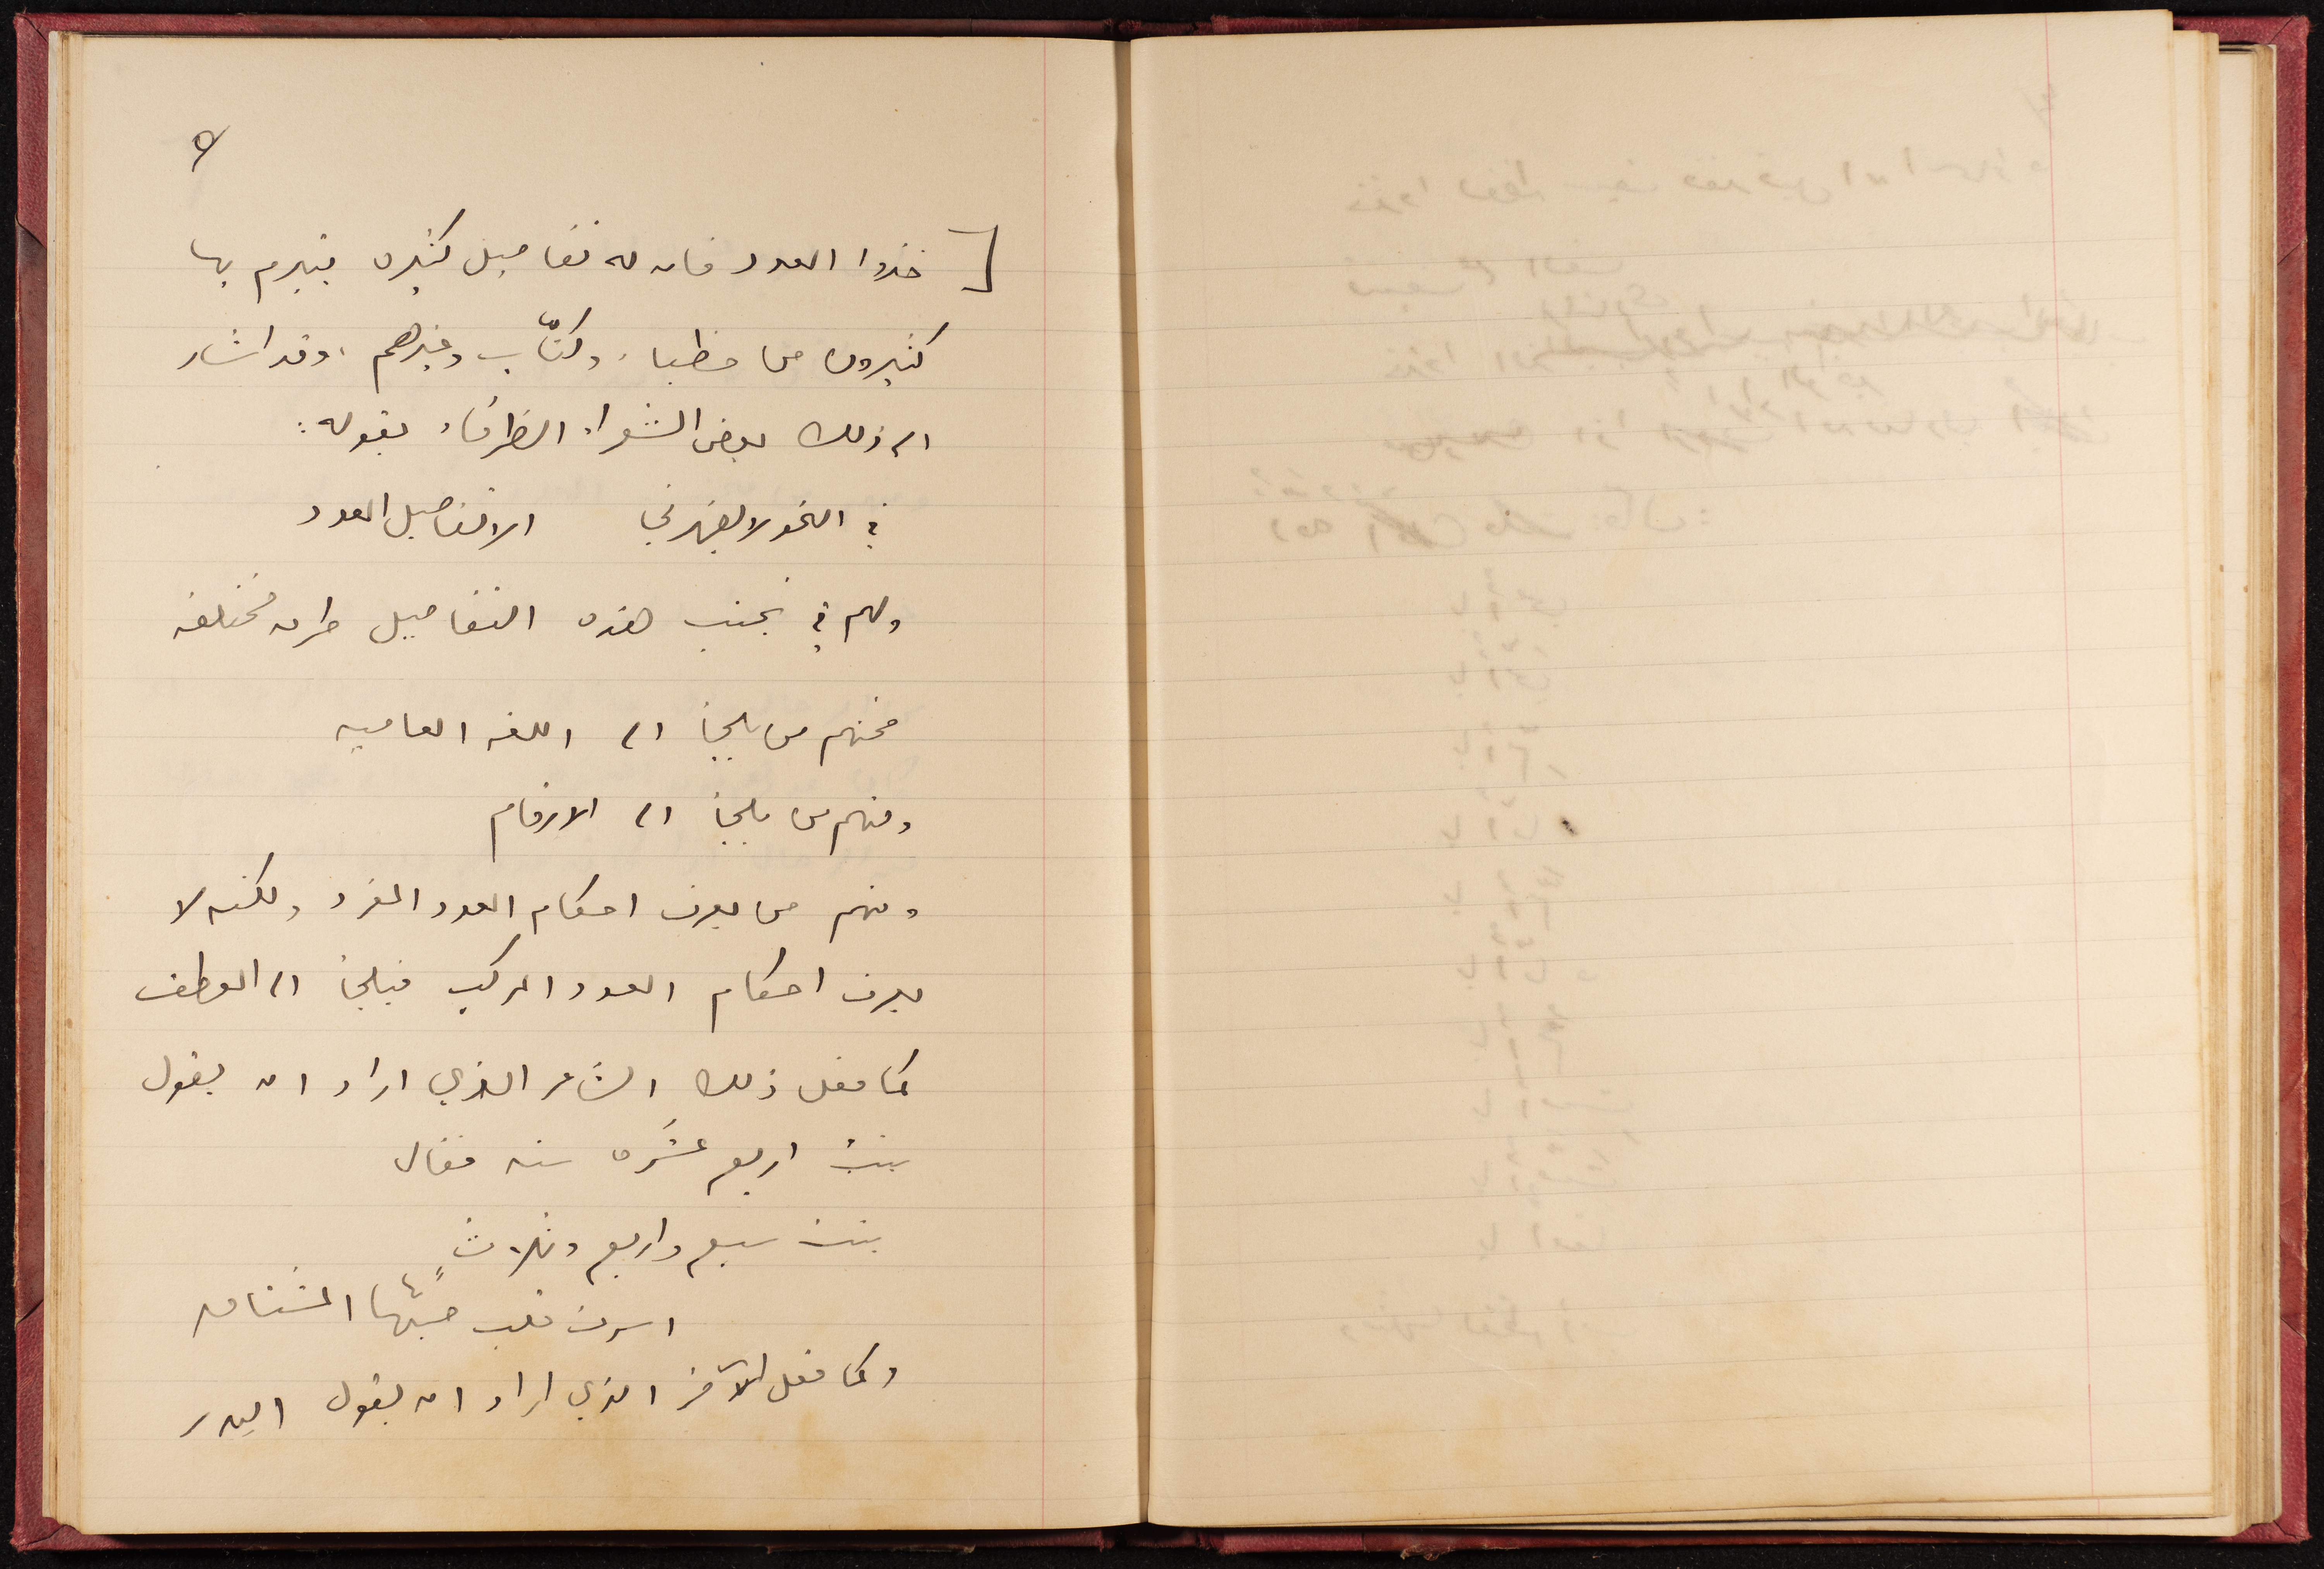 ٥
[ خذوا العدد فان له تفاصيل كثيره يتبرم بها
كثيرون من خطباء وكتّاب وغيرهم، وقد اشار
الى ذلك بعض الشعراء الظرفاء بقوله:
في النحو لا يقهرني الا تفاصيل العدد
ولهم في تجنب هذه التفاصيل طرق مختلفه
فمنهم من يلجأ الى اللغه العاميه
ومنهم من يلجأ الى الارقام
ومنهم من يعرف احكام العدد المفرد ولكنه لا
يعرف احكام العدد المركب فيلجأ الى العطف
كما فعل ذلك الشاعر الذي اراد ان يقول
بنت اربع عشَره سنه فقال
بنت سبع واربع وثلاثٍ
اسرت قلب صبّها المشتاق
وكما فعل الآخر الذي اراد ان يقول البدر